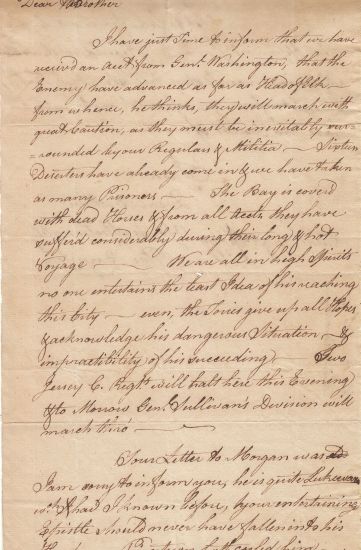 Dear Brother
I have just Time to inform that we have
received an Acct from Genl. Washington, that the
Enemy have advanced as far as Head of Elk
from whence, he thinks, they will march with
great Caution, as they must be inevitably surr-
=rounded by our Regulars & Militia. — Sixteen
Deserters have already come in & we have taken
as many Prisoners — The Bay is coverd
with dead Horses & from all Accts. they have
suffer'd considerably during their long & hot
Voyage — We are all in high Spirits
no one entertains the least Idea of his reaching
this City — even, the Tories give up all Hopes
& acknowledge his dangerous Situation — &
impractibility of his succeeding — Two
Jersey C. Regts. will halt here this Evening
& to Morrow Genl. Sullivan's Division will
march thro' —
Your Letter to Morgan was
I am sorry to inform you, he is quite Lukewarm
& had I known before, your entertaining
Epistle should never have fallen into his